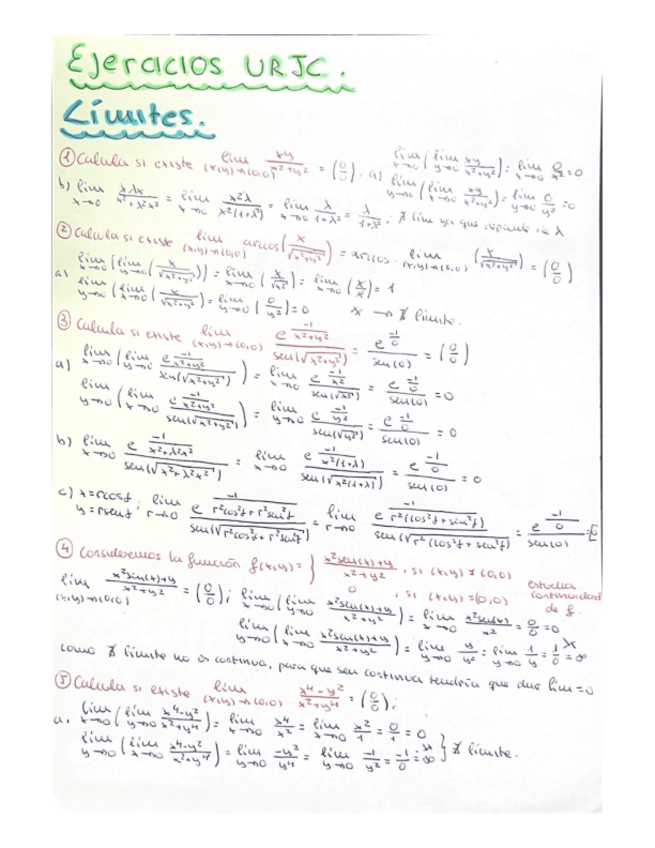 Ejercicios URJC.
Límites.
① Calcula si existe lim (x,y)→(0,0) xy/(x²+y²) = (0/0). a) lim x→0 (lim y→0 xy/(x²+y²)) = lim x→0 0/x² = 0
lim y→0 (lim x→0 xy/(x²+y²)) = lim y→0 0/y² = 0
b) lim x→0 x·λx/(x²+λ²x²) = lim x→0 x²λ/(x²(1+λ²)) = lim x→0 λ/(1+λ²) = λ/(1+λ²); ∄ lim ya que depende de λ
② Calcula si existe lim (x,y)→(0,0) arccos(x/√(x²+y²)) = arccos · lim (x,y)→(0,0) (x/√(x²+y²)) = (0/0)
a) lim x→0 (lim y→0 (x/√(x²+y²))) = lim x→0 (x/√x²) = lim x→0 (x/x) = 1
lim y→0 (lim x→0 (x/√(x²+y²))) = lim y→0 (0/y²) = 0 ✗ → ∄ límite.
③ Calcula si existe lim (x,y)→(0,0) e^(-1/(x²+y²))/sen(√(x²+y²)) = e^(-1/0)/sen(0) = (0/0)
a) lim x→0 (lim y→0 e^(-1/(x²+y²))/sen(√(x²+y²))) = lim x→0 e^(-1/x²)/sen(√x²) = e^(-1/0)/sen(0) = 0
lim y→0 (lim x→0 e^(-1/(x²+y²))/sen(√(x²+y²))) = lim y→0 e^(-1/y²)/sen(√y²) = e^(-1/0)/sen(0) = 0
b) lim x→0 e^(-1/(x²+λ²x²))/sen(√(x²+λ²x²)) = lim x→0 e^(-1/(x²(1+λ)))/sen(√(x²(1+λ))) = e^(-1/0)/sen(0) = 0
c) x=rcost; y=rsent; lim r→0 e^(-1/(r²cos²t+r²sen²t))/sen(√(r²cos²t+r²sen²t)) = lim r→0 e^(-1/(r²(cos²t+sen²t)))/sen(√(r²(cos²t+sen²t))) = e^(-1/0)/sen(0) = 0
④ Consideremos la función f(x,y) = { x²sen(x)+y/(x²+y²), si (x,y)≠(0,0)
0, si (x,y)=(0,0) estudia continuidad de f.
lim (x,y)→(0,0) x²sin(x)+y/(x²+y²) = (0/0); lim x→0 (lim y→0 x²sen(x)+y/(x²+y²)) = lim x→0 x²sen(x)/x² = 0/0 = 0
lim y→0 (lim x→0 x²sen(x)+y/(x²+y²)) = lim y→0 y/y² = lim y→0 1/y = 1/0 = ∞ ✗
como ∄ límite no es continua, para que sea continua tendría que dar lim=0
⑤ Calcula si existe lim (x,y)→(0,0) x⁴-y²/(x²+y⁴) = (0/0);
a. lim x→0 (lim y→0 x⁴-y²/(x²+y⁴)) = lim x→0 x⁴/x² = lim x→0 x²/1 = 0/1 = 0
lim y→0 (lim x→0 x⁴-y²/(x²+y⁴)) = lim y→0 -y²/y⁴ = lim y→0 -1/y² = -1/0 = ∞ ✗ } ∄ límite.